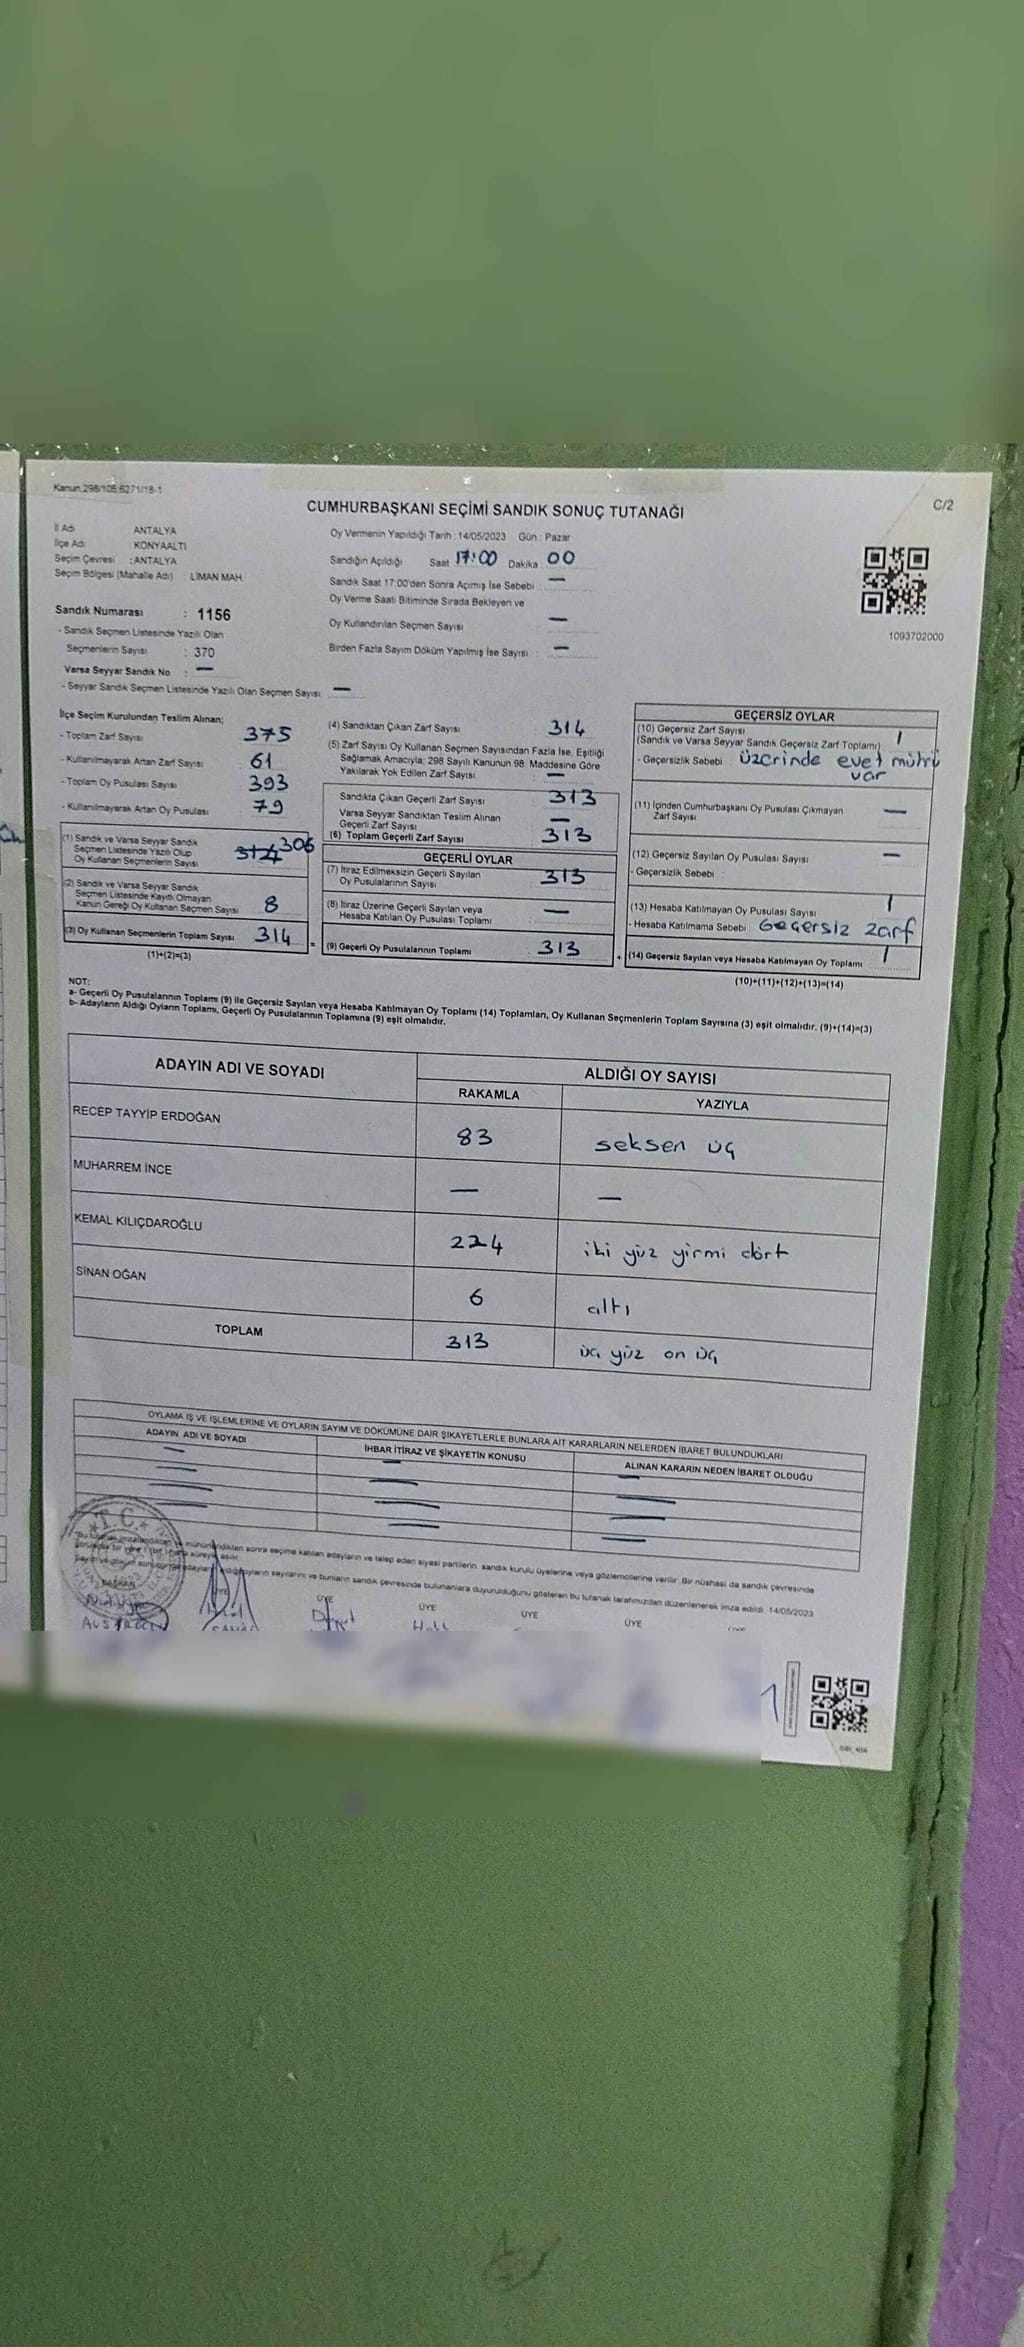 Kanun,298/105,6271/18-1
C/2
CUMHURBAŞKANI SEÇİMİ SANDIK SONUÇ TUTANAĞI
İl Adı : ANTALYA
İlçe Adı : KONYAALTI
Seçim Çevresi : ANTALYA
Seçim Bölgesi (Mahalle Adı) : LİMAN MAH
Sandık Numarası : 1156
- Sandık Seçmen Listesinde Yazılı Olan
Seçmenlerin Sayısı : 370
Varsa Seyyar Sandık No : —
- Seyyar Sandık Seçmen Listesinde Yazılı Olan Seçmen Sayısı : —
Oy Vermenin Yapıldığı Tarih : 14/05/2023 Gün : Pazar
Sandığın Açıldığı Saat 17:00 Dakika : 00
Sandık Saat 17:00'den Sonra Açımış İse Sebebi : —
Oy Verme Saati Bitiminde Sırada Bekleyen ve
Oy Kullandırılan Seçmen Sayısı —
Birden Fazla Sayım Döküm Yapılmış İse Sayısı : —
1093702000
İlçe Seçim Kurulundan Teslim Alınan;
- Toplam Zarf Sayısı 375
- Kullanılmayarak Artan Zarf Sayısı 61
- Toplam Oy Pusulası Sayısı 393
- Kullanılmayarak Artan Oy Pusulası 79
(1) Sandık ve Varsa Seyyar Sandık
Seçmen Listesinde Yazılı Olup
Oy Kullanan Seçmenlerin Sayısı 314 306
(2) Sandık ve Varsa Seyyar Sandık
Seçmen Listesinde Kayıtlı Olmayan
Kanun Gereği Oy Kullanan Seçmen Sayısı 8
(3) Oy Kullanan Seçmenlerin Toplam Sayısı 314
(1)+(2)=(3)
(4) Sandıktan Çıkan Zarf Sayısı 314
(5) Zarf Sayısı Oy Kullanan Seçmen Sayısından Fazla İse, Eşitliği
Sağlamak Amacıyla, 298 Sayılı Kanunun 98. Maddesine Göre
Yakılarak Yok Edilen Zarf Sayısı —
Sandıkta Çıkan Geçerli Zarf Sayısı : 313
Varsa Seyyar Sandıktan Teslim Alınan
Geçerli Zarf Sayısı —
(6) Toplam Geçerli Zarf Sayısı 313
GEÇERLİ OYLAR
(7) İtiraz Edilmeksizin Geçerli Sayılan
Oy Pusulalarının Sayısı 313
(8) İtiraz Üzerine Geçerli Sayılan veya
Hesaba Katılan Oy Pusulası Toplamı —
= (9) Geçerli Oy Pusulalarının Toplamı : 313 +
GEÇERSİZ OYLAR
(10) Geçersiz Zarf Sayısı
(Sandık ve Varsa Seyyar Sandık Geçersiz Zarf Toplamı) 1
- Geçersizlik Sebebi : üzerinde evet mührü
var
(11) İçinden Cumhurbaşkanı Oy Pusulası Çıkmayan
Zarf Sayısı —
(12) Geçersiz Sayılan Oy Pusulası Sayısı —
- Geçersizlik Sebebi :
(13) Hesaba Katılmayan Oy Pusulası Sayısı 1
- Hesaba Katılmama Sebebi : Geçersiz zarf
(14) Geçersiz Sayılan veya Hesaba Katılmayan Oy Toplamı 1
(10)+(11)+(12)+(13)=(14)
NOT:
a- Geçerli Oy Pusulalarının Toplamı (9) ile Geçersiz Sayılan veya Hesaba Katılmayan Oy Toplamı (14) Toplamları, Oy Kullanan Seçmenlerin Toplam Sayısına (3) eşit olmalıdır. (9)+(14)=(3)
b- Adayların Aldığı Oyların Toplamı, Geçerli Oy Pusulalarının Toplamına (9) eşit olmalıdır.
ADAYIN ADI VE SOYADI ALDIĞI OY SAYISI
RAKAMLA YAZIYLA
RECEP TAYYİP ERDOĞAN 83 seksen üç
MUHARREM İNCE — —
KEMAL KILIÇDAROĞLU 224 iki yüz yirmi dört
SİNAN OĞAN 6 altı
TOPLAM 313 üç yüz on üç
OYLAMA İŞ VE İŞLEMLERİNE VE OYLARIN SAYIM VE DÖKÜMÜNE DAİR ŞİKAYETLERLE BUNLARA AİT KARARLARIN NELERDEN İBARET BULUNDUKLARI
ADAYIN ADI VE SOYADI İHBAR İTİRAZ VE ŞİKAYETİN KONUSU ALINAN KARARIN NEDEN İBARET OLDUĞU
T.C.
mühürlendikten sonra seçime katılan adayların ve talep eden siyasi partilerin sandık kurulu üyelerine veya gözlemcilerine verilir. Bir nüshası da sandık çevresinde
oyların sayılarını ve bunların sandık çevresinde bulunanlara duyurulduğunu gösteren bu tutanak tarafımızdan düzenlenerek imza edildi. 14/05/2023
BAŞKAN ÜYE ÜYE ÜYE ÜYE ÜYE